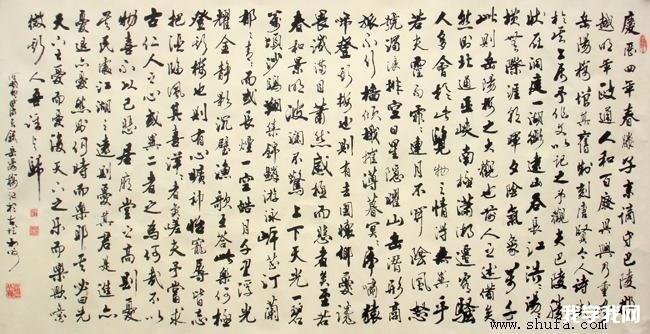 慶曆四年春滕子京謫守巴陵郡
越明年政通人和百廢具興乃重修
岳陽樓增其舊制刻唐賢今人詩
於其上屬予作文以記之予觀夫巴陵勝
狀在洞庭一湖銜遠山吞長江浩浩湯湯
橫無際涯朝暉夕陰氣象萬千
此則岳陽樓之大觀也前人之述備矣
然則北通巫峽南極瀟湘遷客騷
人多會於此覽物之情得無異乎
若夫霪雨霏霏連月不開陰風怒
號濁浪排空日星隱曜山岳潛形商
旅不行檣傾楫摧薄暮冥冥虎嘯猿
啼登斯樓也則有去國懷鄉憂讒
畏譏滿目蕭然感極而悲者矣至若
春和景明波瀾不驚上下天光一碧
萬頃沙鷗翔集錦鱗游泳岸芷汀蘭
郁郁青青而或長煙一空皓月千里浮光
耀金靜影沉璧漁歌互答此樂何極
登斯樓也則有心曠神怡寵辱皆忘
把酒臨風其喜洋洋者矣嗟夫予嘗求
古仁人之心或異二者之為何哉不以
物喜不以己悲居廟堂之高則憂
其民處江湖之遠則憂其君是進亦
憂退亦憂然則何時而樂耶其必曰先
天下之憂而憂後天下之樂而樂歟噫
微斯人吾誰與歸
錄岳陽樓記於
我学我网
www.shufa.com